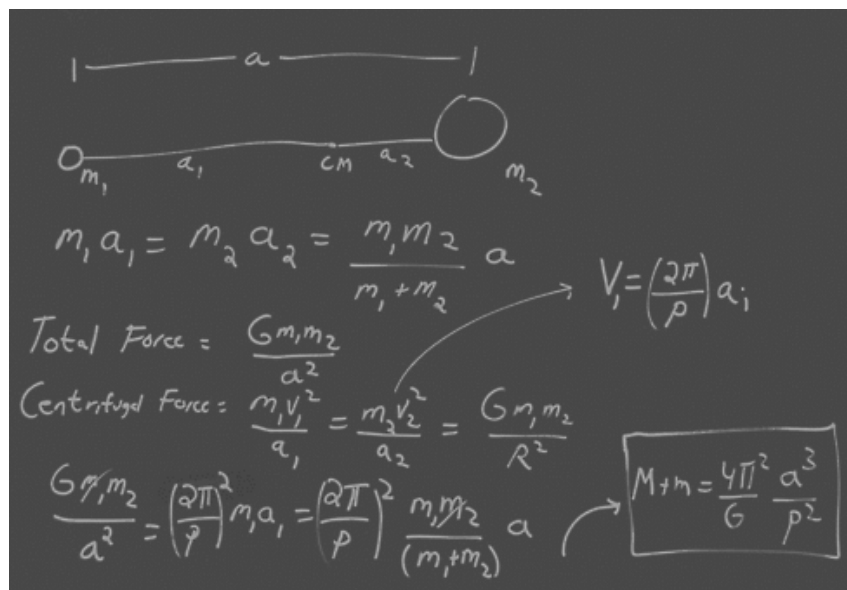 a
m₁ a₁ CM a₂ m₂
m₁a₁ = m₂ a₂ = m₁m₂/(m₁+m₂) a
V₁ = (2π/P) a₁
Total Force = Gm₁m₂/a²
Centrifugal Force = m₁v₁²/a₁ = m₂v₂²/a₂ = Gm₁m₂/R²
Gm₁m₂/a² = (2π/P)² m₁a₁ = (2π/P)² m₁m₂/(m₁+m₂) a
M+m = 4π²/G a³/P²